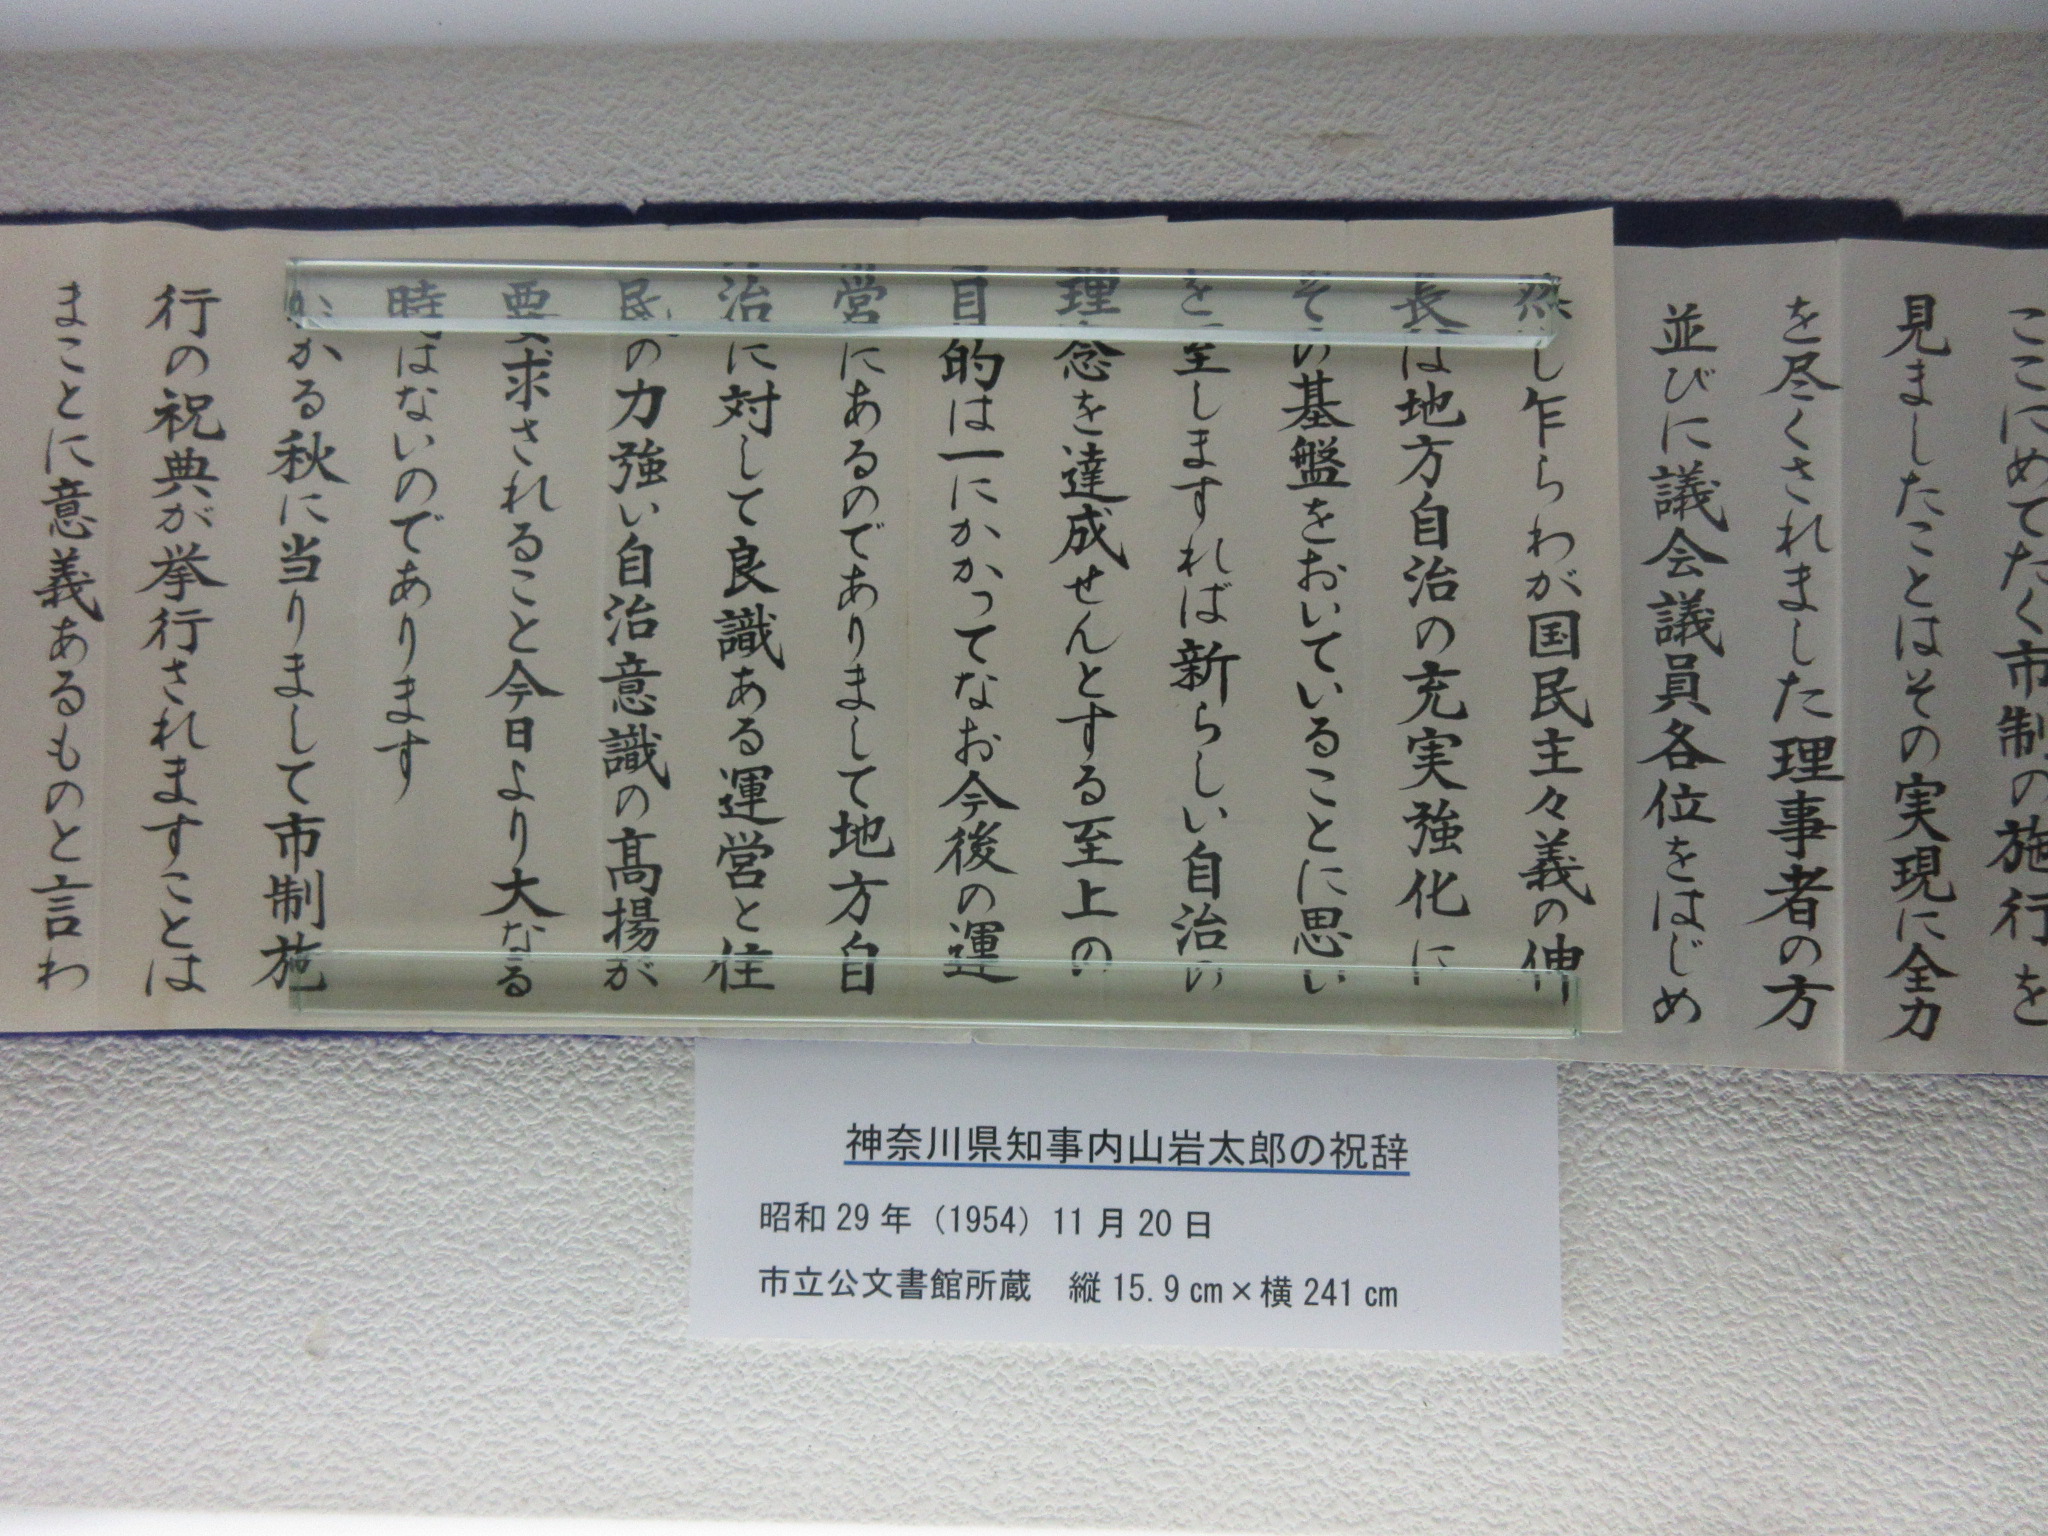 ここにめでたく市制の施行を
見ましたことはその実現に全力
を尽くされました理事者の方
並びに議会議員各位をはじめ
然し乍らわが国民主々義の伸
長は地方自治の充実強化に
その基盤をおいていることに思い
を至しますれば新らしい自治の
理念を達成せんとする至上の
目的は一にかかってなお今後の運
営にあるのでありまして地方自
治に対して良識ある運営と住
民の力強い自治意識の高揚が
要求されること今日より大なる
時はないのであります
かかる秋に当りまして市制施
行の祝典が挙行されますことは
まことに意義あるものと言わ
神奈川県知事内山岩太郎の祝辞
昭和29年（1954）11月20日
市立公文書館所蔵　縦15.9cm×横241cm